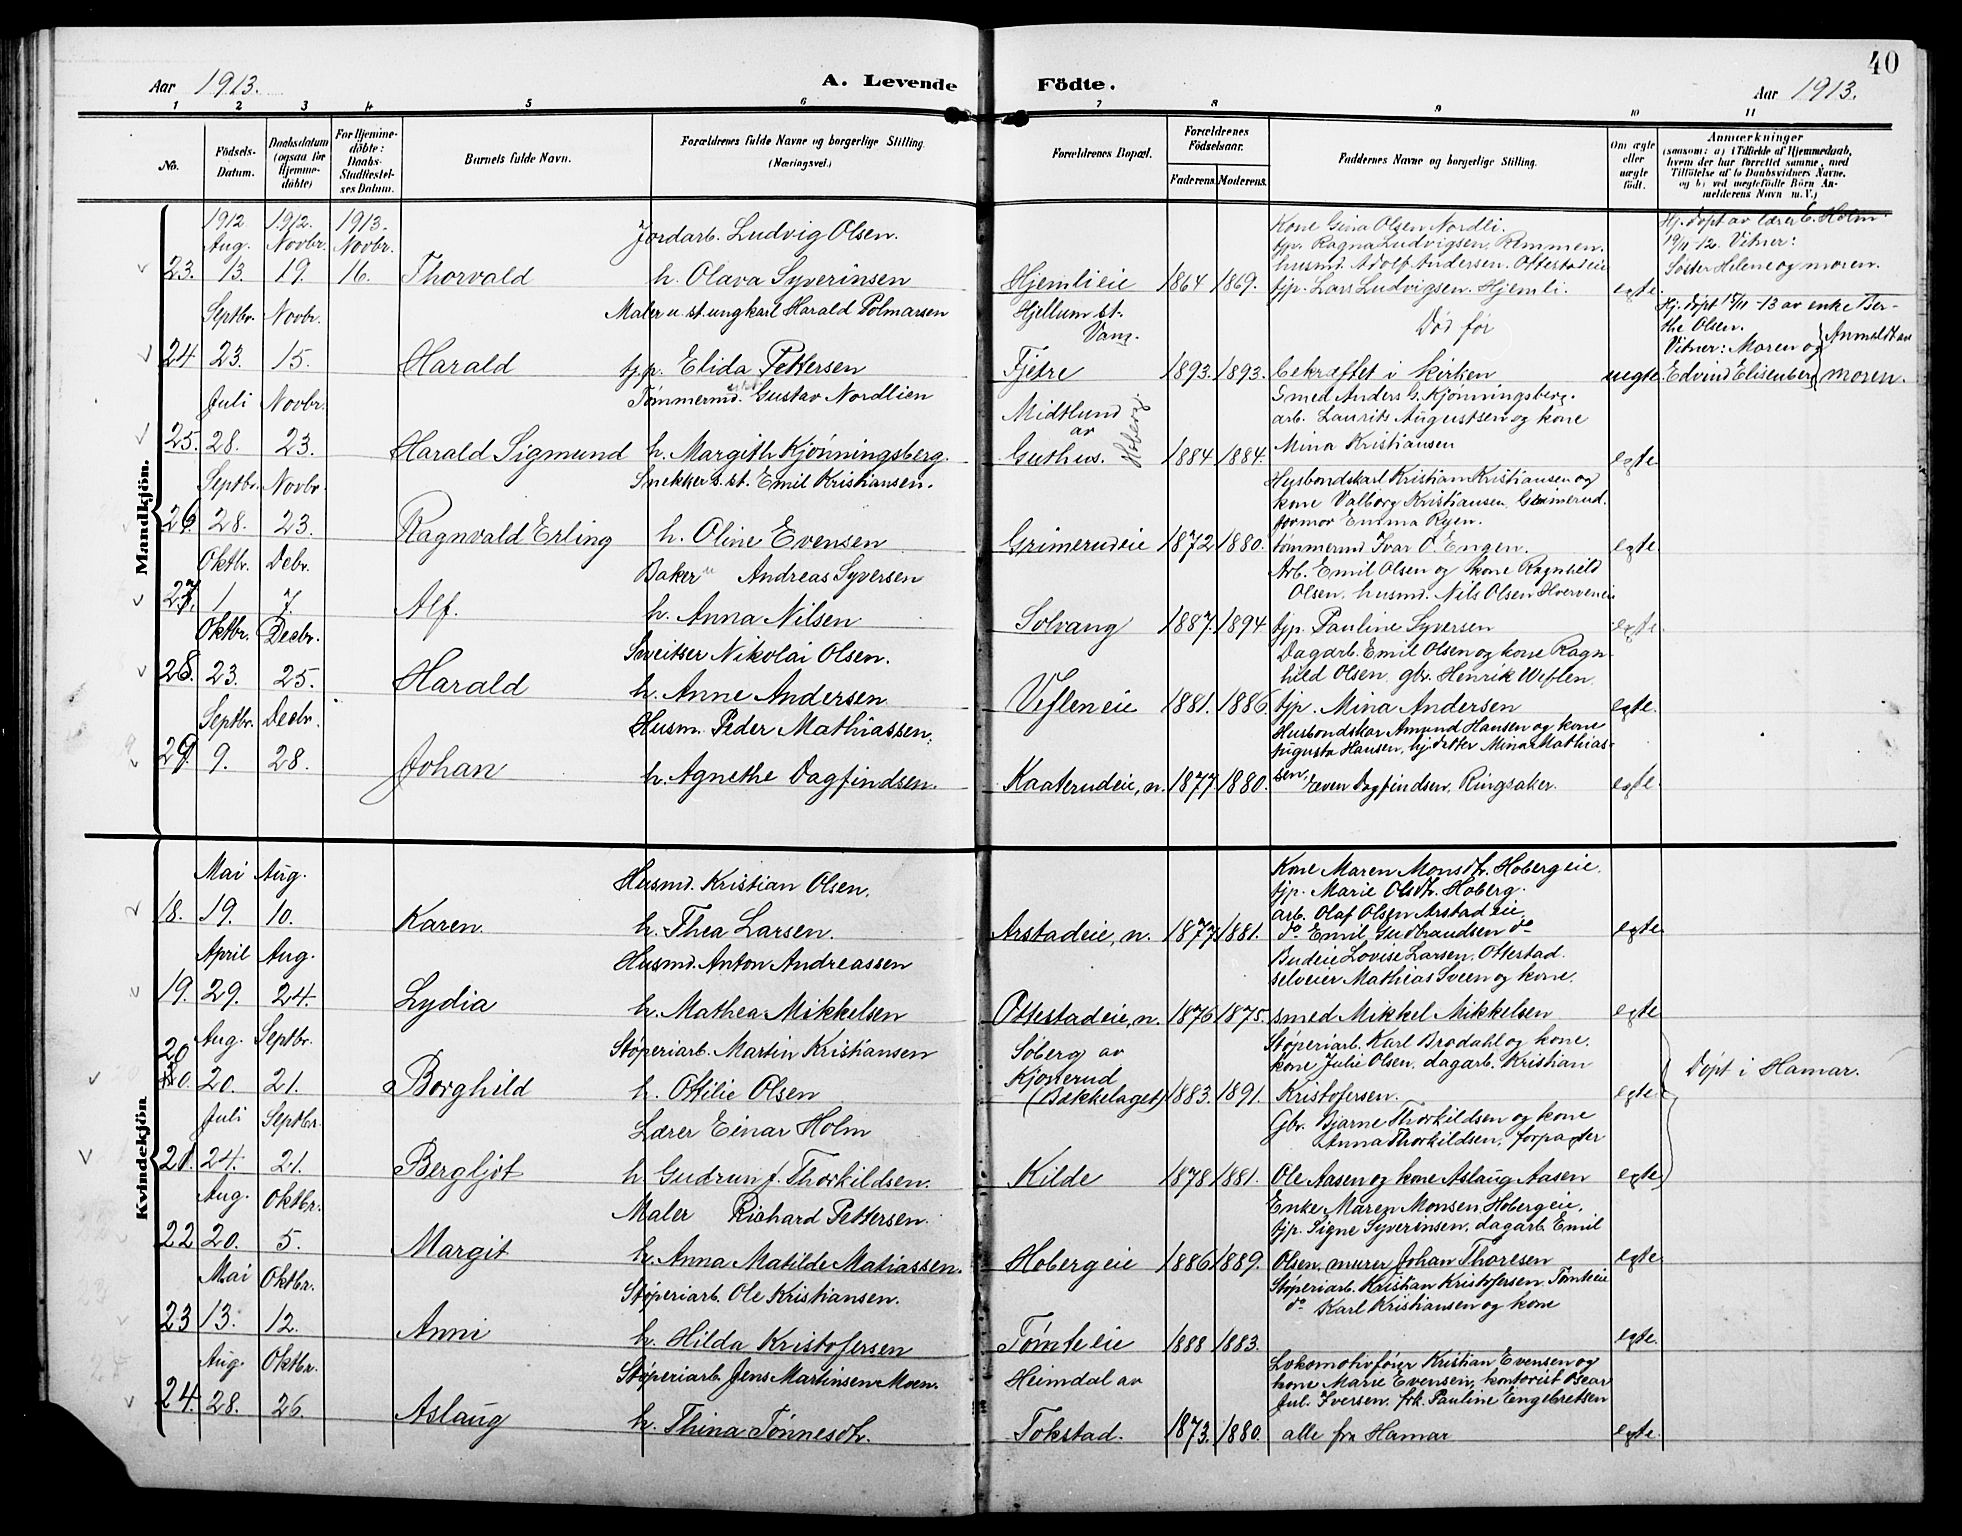 40
Aar 1913.
A. Levende Födte.
Aar 1913.
1 2 3 4 5 6 7 8 9 10 11
No.
Födsels-Datum.
Daabsdatum (ogsaa för Hjemme-döbte)
For Hjemme-döbte: Daabs-Stadfæstel-ses Datum.
Barnets fulde Navn.
Forældrenes fulde Navne og borgerlige Stilling. (Næringsvei.)
Forældrenes Bopæl.
Forældrenes Födselsaar.
Faderens. Moderens.
Faddernes Navne og borgerlige Stilling.
Om ægte eller uægte födt.
Anmærkninger
(saasom: a) i Tilfælde af Hjemmedaab, hvem der har forrettet samme, med Tilföielse af to Daabsvidners Navne, og b) ved uægtefödte Börn An-melderens Navn m. V.)
Mandkjön.
1912 1912. 1913. Jordarb. Ludvig Olsen. Kone Gina Olsen Nordli. Hj. döpt av lærer E. Holm
Aug. Novbr. Novbr. tjp. Ragna Ludvigsen, Rommen. 19/11-12. Vitner:
husmd. Adolf Andersen. Ottestadeie Söster Helene og moren.
23. 13. 19. 16. Thorvald h. Olava Syverinsen Hjemlieie 1864 1869. tjp. Lars Ludvigsen. Hjemli. egte.
Septbr. Novbr. Maler u. st. ungkarl Harald Polmarsen Hjellum st. Vang. Död för Hj. döpt 15/11-13 av enke Ber-
the Olsen.
Vitner: Moren og Anmeldt av
24 23. 15. Harald tjp. Elida Pettersen Tjetre 1893. 1893. bekræftet i kirken uegte. Edvind Elisenberg moren.
Juli Novbr. Tömmermd. Gustav Nordlien Midtlund av Hoberg. Smed Anders G. Kjönningsberg.
arb. Laurits Augustsen og kone
25. 28. 23. Harald Sigmund h. Margith Kjönningsberg. Guthus. 1884 1884. Mina Kristiansen egte.
Septbr. Novbr. Snekker s. st. Emil Kristiansen. Husbondskarl Kristian Kristiansen og
kone Valborg Kristiansen, Grimerud.
formor Emma Ryen.
26. 28. 23. Ragnvald Erling h. Oline Evensen Grimerudeie 1872 1880. tömmermd Ivar O. Engen. egte.
Oktbr. Debr. Baker Andreas Syversen Arb. Emil Olsen og kone Ragnhild
Olsen, husmd. Nils Olsen Hverveneie
27. 1 7. Alf. h. Anna Nilsen Solvang 1887. 1894 tjp. Pauline Syversen egte.
Oktbr. Decbr. Sveitser Nikolai Olsen. Dagarb. Emil Olsen og kone Ragn-
hild Olsen, gbr. Henrik Weflen.
28. 23. 25. Harald h. Anne Andersen Vefleneie 1881. 1886 tjp. Mina Andersen egte.
Septbr. Decbr. Husm. Peder Mathiassen. Husbondskar Amund Hansen og kone
Augusta Hansen, hj.datter Mina Mathias-
sen,
29. 9. 28. Johan h. Agnethe Dagfindsen. Kaaterudeie, n. 1877 1880. Even Dagfindsen, Ringsaker. egte.
Kvindekjön
Mai Aug. Husmd. Kristian Olsen. Kone Maren Monsdt. Hobergeie.
tjp. Marie Olsdt. Hoberg.
arb. Olaf Olsen Arstadeie
18. 19. 10. Karen. h. Thea Larsen. Arstadeie, n. 1877 1881. do Emil Gudbrandsen do egte.
April Aug. Husmd. Anton Andreassen Budeie Lovise Larsen, Ottestad.
selveier Mathias Sveen og kone.
19. 29. 24. Lydia h. Mathea Mikkelsen Ottestadeie, n. 1876 1875. smed Mikkel Mikkelsen egte
Aug. Septbr. Stöperiarb. Martin Kristiansen Söberg av Stöperiarb. Karl Brodahl og kone.
20 Kjonerud kone Julie Olsen, dagarb. Kristian Döpt i Hamar.
20. 20. 21. Borghild h. Ottilie Olsen (Bækkelaget) 1883. 1891. Kristofersen. egte.
Juli Septbr. Lærer Einar Holm Gbr. Bjarne Thorkildsen og kone
Anna Thorkildsen, forpagter
21. 24. 21. Bergljot h Gudrun f. Thorkildsen. Kilde 1878 1881. Ole Aasen og kone Aslaug Aasen egte
Aug. Oktbr. Maler Richard Pettersen. Enke Maren Monsen. Hobergeie.
tjp. Signe Syverinsen, dagarb Emil
22 20. 5. Margit h. Anna Matilde Matiassen. Hobergeie 1886 1889. Olsen, murer Johan Thoresen egte.
Mai Oktbr. Stöperiarb. Ole Kristiansen. Stöperiarb. Kristian Kristofersen, Tömteeie
do Karl Kristiansen og kone
23 13. 12. Anni h. Hilda Kristofersen Tömteeie 1888 1883. egte.
Aug. Oktbr. Stöperiarb. Jens Martinsen Moen. Heimdal av Lokomotivförer Kristian Evensen og
kone Marie Evensen, kontorist Oscar
Jul. Iversen, frk. Pauline Engebretsen
24. 28. 26. Aslaug h. Thina Tönnesdtr. Tokstad. 1873. 1880. alle fra Hamar egte.